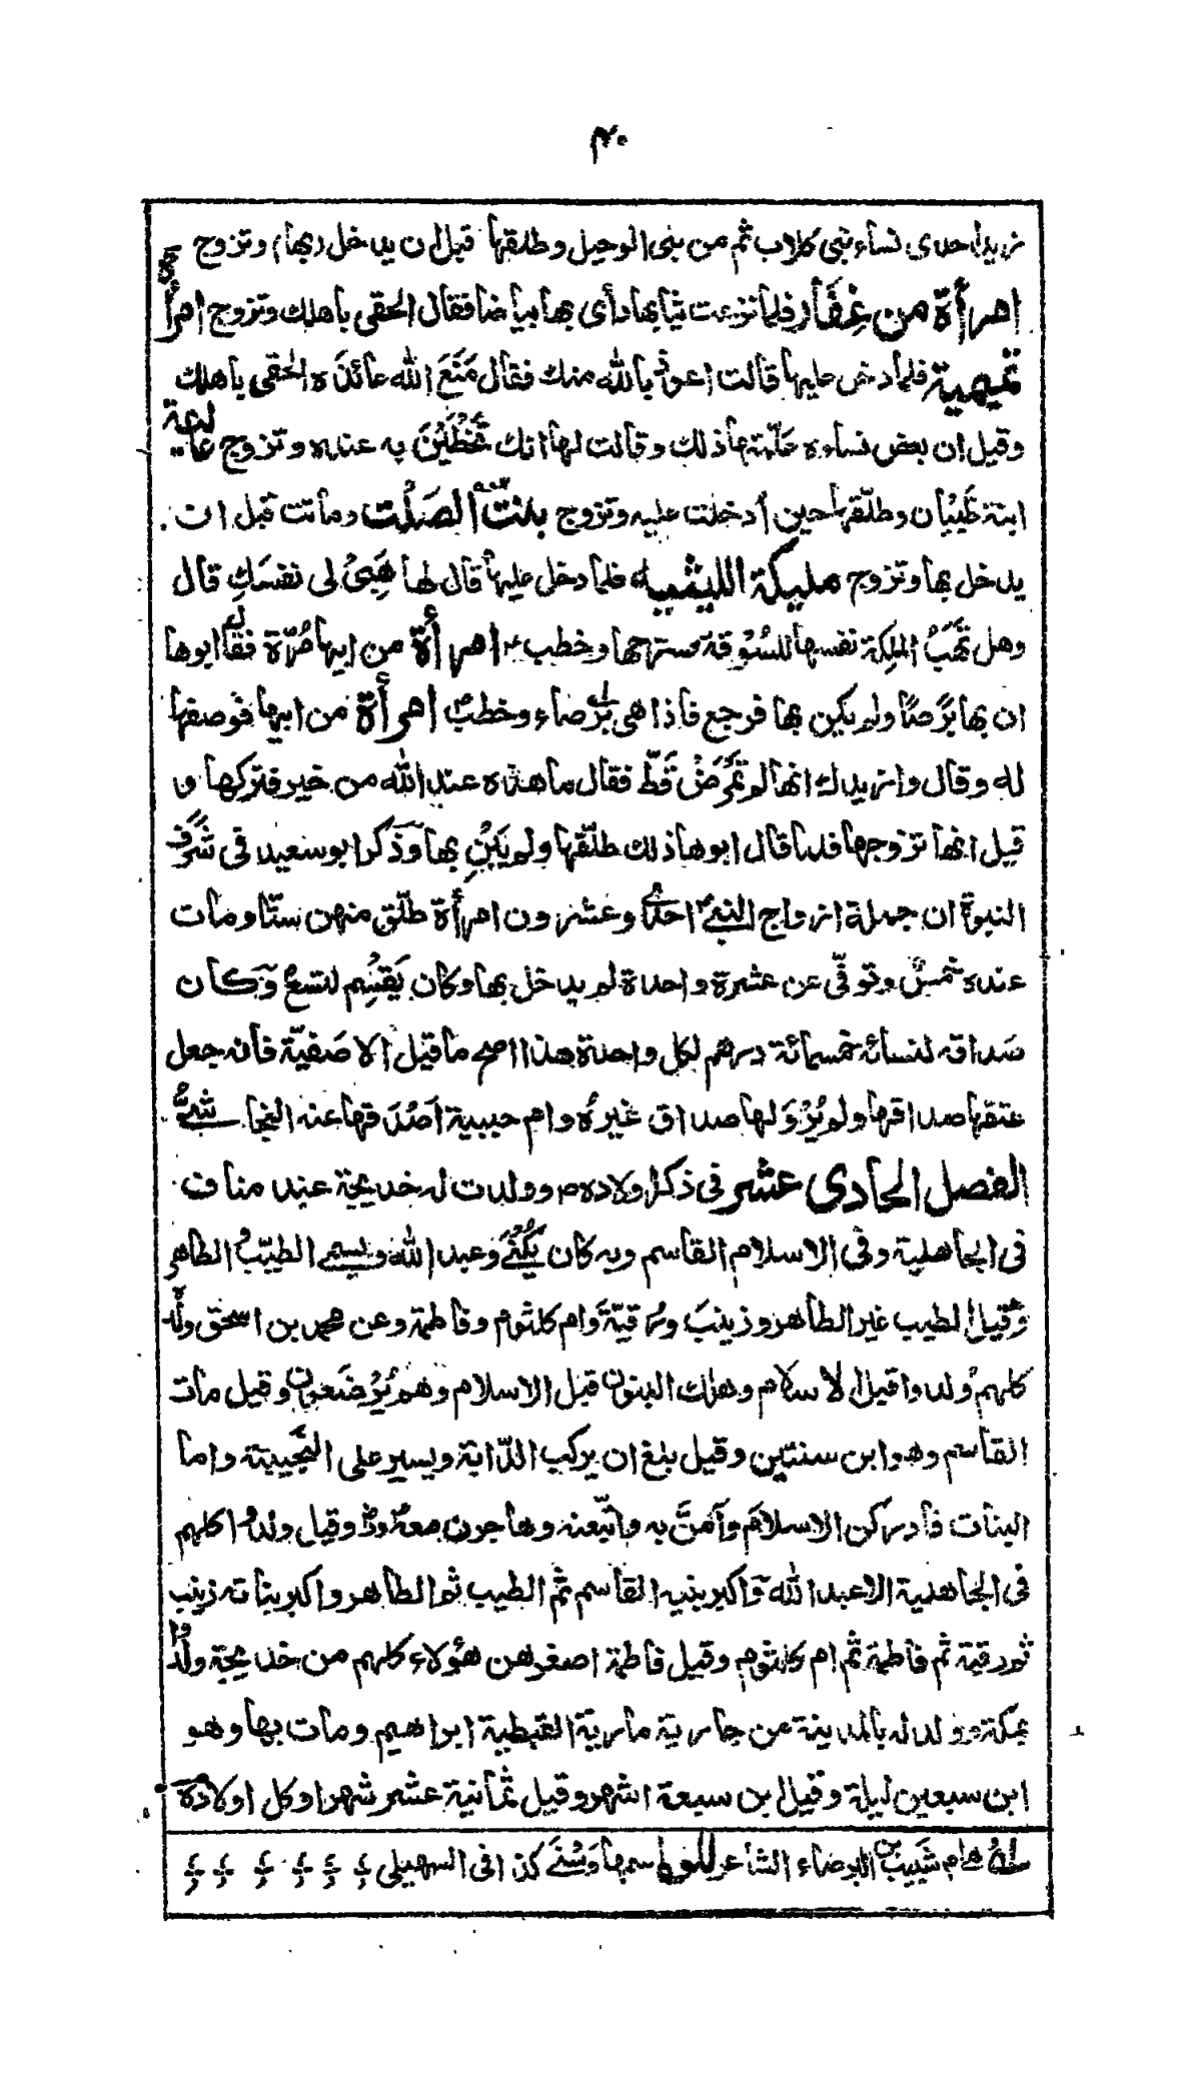 ٣٠
زيد احدى نساء بنى كلاب ثم من بنى الوحيل وطلقها قبل ان يدخل (بها) وتزوج
امرأة من غِفَار فلما نزعت ثيابها رأى بها بياضا فقال الحقى باهلك وتزوج امرأ
تميمية فلما دخل عليها قالت اعوذ بالله منك فقال مَنَعَ الله عائذَه الحقى باهلك
وقيل ان بعض نساءه علّمتها ذلك وقالت لها انك تَحْظَيْنَ به عنده وتزوج عالية
ابنة ظَبْيَان وطلّقها حين أدخلت عليه وتزوج بنت الصَلْت وماتت قبل ان
يدخل بها وتزوج مليكة الليثية فلما دخل عليها قال لها هَبِىْ لى نفسَكِ قال
وهل تَهَبُ الملِكة نفسها للسُوْقة فسترحها وخطب امرأة من ابيها مُرّة فقال ابوها
ان بها بَرَصًا ولم يكن بها فرجع فاذا هى بَرْصاء وخطب امرأة من ابيها فوصفها
له وقال وازيدك انها لم تَمْرَضْ قَطّ فقال ما هذه عند الله من خير فتركها و
قيل انها تزوجها فلما قال ابوها ذلك طلّقها ولم يَبْنِ بها وذكر ابو سعيد فى شَرَف
النبوة ان جملة ازواج النبى احدى وعشرون امرأة طلّق منهن ستّا ومات
عنده خمس وتوفّى عن عشرة واحدة لم يدخل بها وكان يَقسِم لتسع وكان
صَداقه لنسائه خمسمائة درهم لكل واحدة هذا اصح ما قيل الا صَفيّة فانه جعل
عتقها صداقها ولم يُرْوَ لها صداق غيرُه وام حبيبة اَصْدَقها عنه النجاشىُّ
الفصل الحادى عشر فى ذكر اولاده م وولدت له خديجة عبد مناف
فى الجاهلية وفى الاسلام القاسم وبه كان يُكْنَى وعبد الله ويسمى الطيّبُ الطاهر
وقيل الطيب غير الطاهر وزينبَ ورقيّةَ وام كلثوم وفاطمة وعن محمد بن اسحٰق ولّد
كلهم ولدوا قبل الاسلام وهلك البنون قبل الاسلام وهم يُرْضَعون وقيل مات
القاسم وهو ابن سنتين وقيل بلغ ان يركب الدّابة ويسير على النَّجيبة واما
البنات فادركن الاسلامَ وآمَنَّ به واتّبعنه وهاجرن معه وقيل ولدوا كلهم
فى الجاهلية الا عبد الله واكبر بنيه القاسم ثم الطيب ثم الطاهر واكبر بناته زينب
ثم رقية ثم فاطمة ثم ام كلثوم وقيل فاطمة اصغرهن هؤلاء كلهم من خديجة ولدوا
بمكة وولد له بالمدينة من جارية مارية القبطية ابراهيم ومات بها وهو
ابن سبعين ليلة وقيل ابن سبعة اشهر وقيل ثمانية عشر شهرا وكل اولاده
ام شَبِيب بن البرصاء الشاعر اسمها كذا فى السهيلى